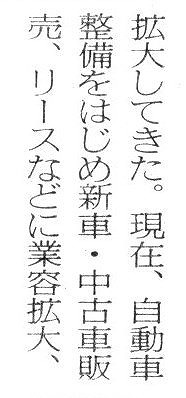 拡大してきた。現在、自動車
整備をはじめ新車・中古車販
売、リースなどに業容拡大、